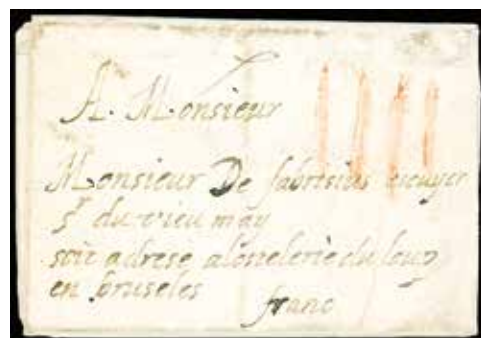 A. Monsieur
Monsieur De fabrisius escuyer
sr du vieu may
soit adresé alostelerie du loup
en bruseles
franc